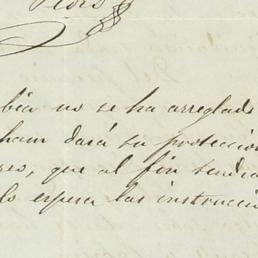 bia no se ha arreglado
ham dará su protección
res, que al fin tendrá
lo espera las instrucci